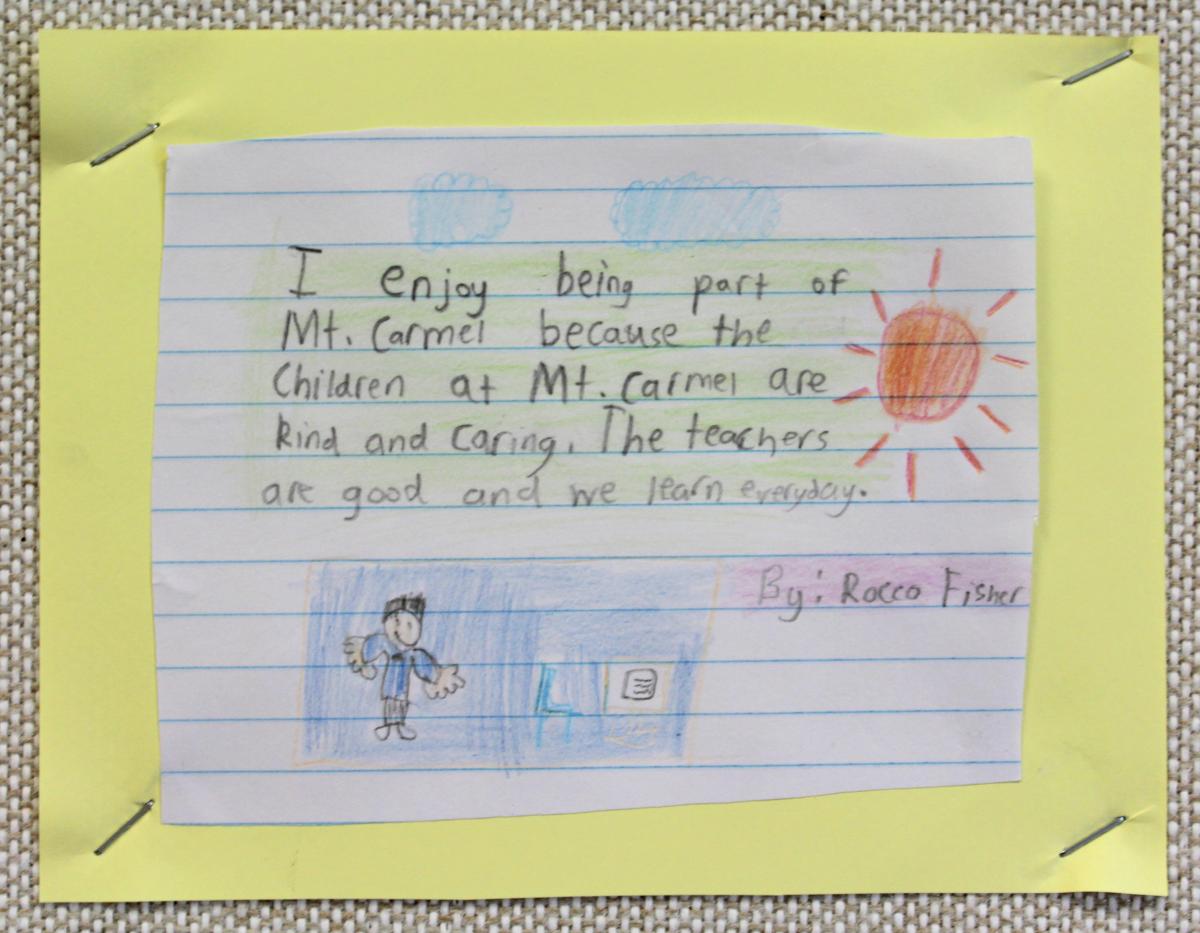 I enjoy being part of
Mt. Carmel because the
Children at Mt. Carmel are
kind and caring. The teachers
are good and we learn everyday.
By: Rocco Fisher